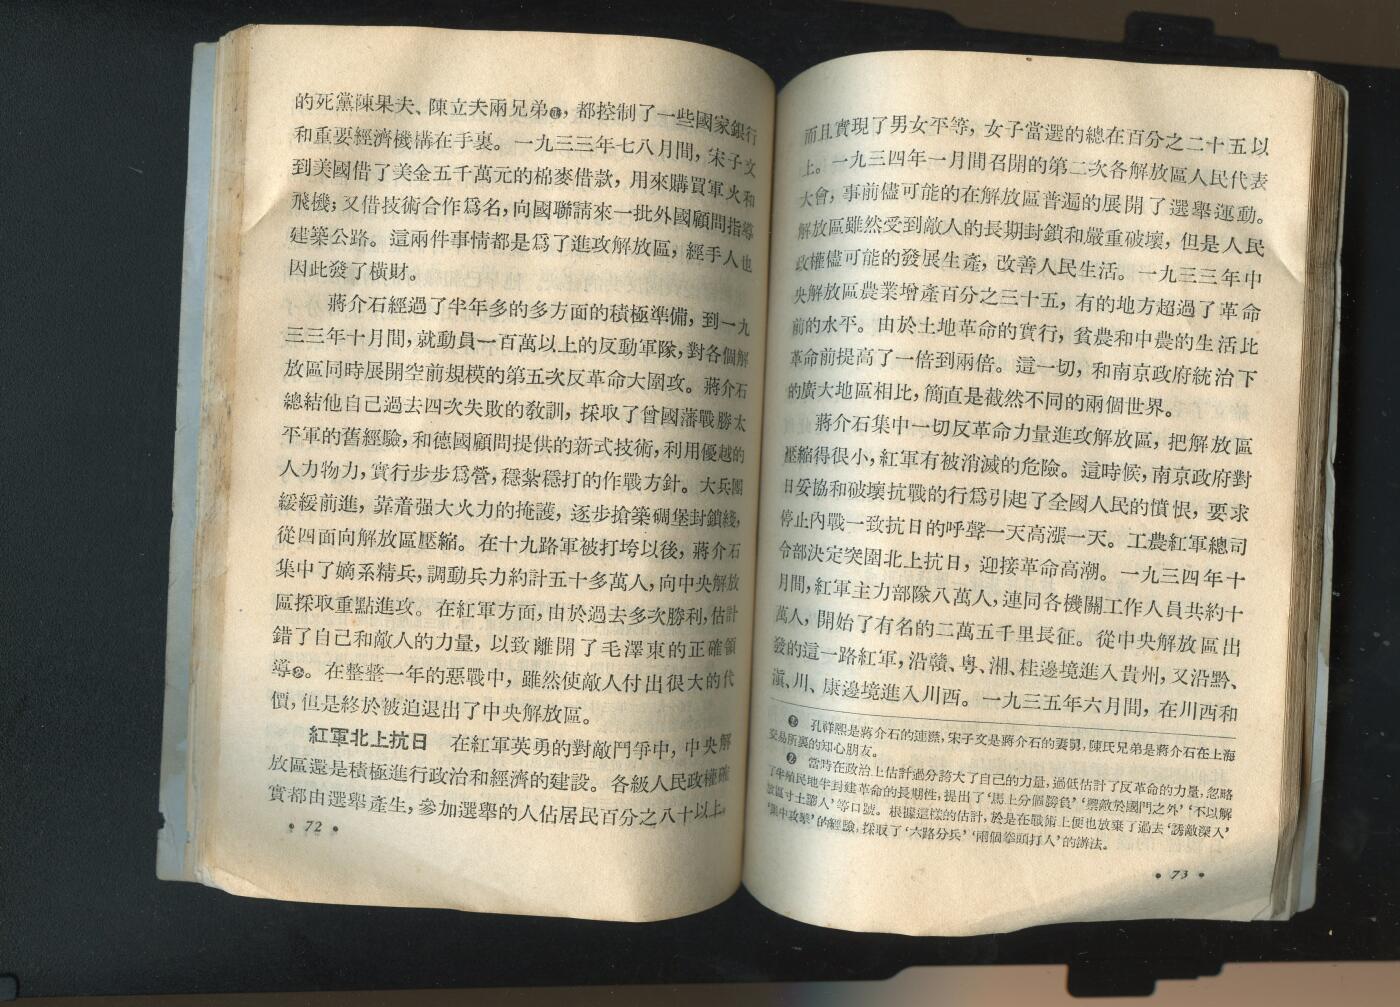 的死黨陳果夫、陳立夫兩兄弟，都控制了一些國家銀行
和重要經濟機構在手裏。一九三三年七八月間，宋子文
到美國借了美金五千萬元的棉麥借款，用來購買軍火和
飛機；又借技術合作爲名，向國聯請來一批外國顧問指導
建築公路。這兩件事情都是爲了進攻解放區，經手人也
因此發了橫財。
蔣介石經過了半年多的多方面的積極準備，到一九
三三年十月間，就動員一百萬以上的反動軍隊，對各個解
放區同時展開空前規模的第五次反革命大圍攻。蔣介石
總結他自己過去四次失敗的教訓，採取了曾國藩戰勝太
平軍的舊經驗，和德國顧問提供的新式技術，利用優越的
人力物力，實行步步爲營，穩紮穩打的作戰方針。大兵團
緩緩前進，靠着强大火力的掩護，逐步搶築碉堡封鎖綫，
從四面向解放區壓縮。在十九路軍被打垮以後，蔣介石
集中了嫡系精兵，調動兵力約計五十多萬人，向中央解放
區採取重點進攻。在紅軍方面，由於過去多次勝利，估計
錯了自己和敵人的力量，以致離開了毛澤東的正確領
導。在整整一年的惡戰中，雖然使敵人付出很大的代
價，但是終於被迫退出了中央解放區。
紅軍北上抗日　在紅軍英勇的對敵鬥爭中，中央解
放區還是積極進行政治和經濟的建設。各級人民政權確
實都由選舉產生，參加選舉的人佔居民百分之八十以上。
• 72 •
而且實現了男女平等，女子當選的總在百分之二十五以
上。一九三四年一月間召開的第二次各解放區人民代表
大會，事前儘可能的在解放區普遍的展開了選舉運動。
解放區雖然受到敵人的長期封鎖和嚴重破壞，但是人民
政權儘可能的發展生產，改善人民生活。一九三三年中
央解放區農業增產百分之三十五，有的地方超過了革命
前的水平。由於土地革命的實行，貧農和中農的生活比
革命前提高了一倍到兩倍。這一切，和南京政府統治下
的廣大地區相比，簡直是截然不同的兩個世界。
蔣介石集中一切反革命力量進攻解放區，把解放區
壓縮得很小，紅軍有被消滅的危險。這時候，南京政府對
日妥協和破壞抗戰的行爲引起了全國人民的憤恨，要求
停止內戰一致抗日的呼聲一天高漲一天。工農紅軍總司
令部決定突圍北上抗日，迎接革命高潮。一九三四年十
月間，紅軍主力部隊八萬人，連同各機關工作人員共約十
萬人，開始了有名的二萬五千里長征。從中央解放區出
發的這一路紅軍，沿贛、粵、湘、桂邊境進入貴州，又沿黔、
滇、川、康邊境進入川西。一九三五年六月間，在川西和
孔祥熙是蔣介石的連襟，宋子文是蔣介石的妻舅，陳氏兄弟是蔣介石在上海
交易所裏的知心朋友。
當時在政治上估計過分誇大了自己的力量，過低估計了反革命的力量，忽略
了半殖民地半封建革命的長期性，提出了‘馬上分個勝負’‘禦敵於國門之外’‘不以解
放區寸土讓人’等口號。根據這樣的估計，於是在戰術上便也放棄了過去‘誘敵深入’
‘集中攻擊’的經驗，採取了‘六路分兵’‘兩個拳頭打人’的辦法。
• 73 •